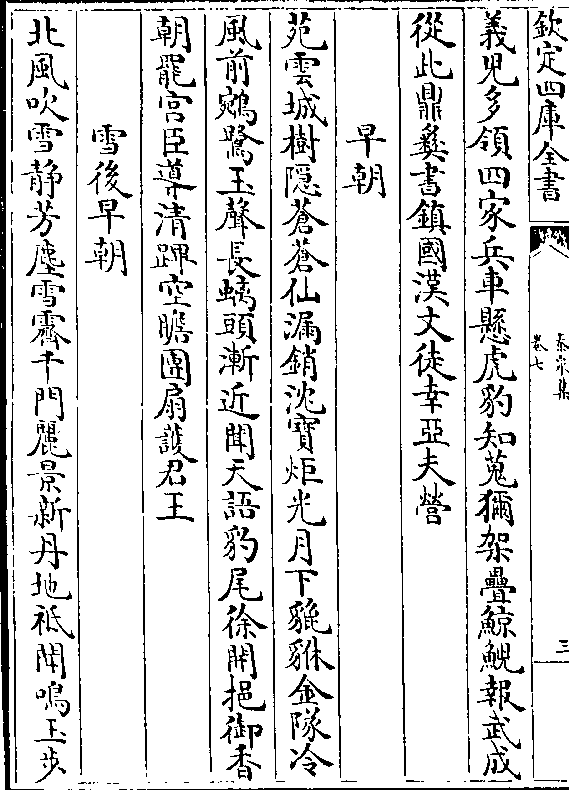 欽定四庫全書
泰泉集
卷七
三
義兒多領四家兵車懸虎豹知蒐獮架疊鯨鯢報武成
從此鼎彝書鎮國漢文徒幸亞夫營
早朝
苑雲城樹隱蒼蒼仙漏銷沈寶炬光月下貔貅金隊冷
風前鵷鷺玉聲長螭頭漸近聞天語豹尾徐開挹御香
朝罷宫臣導清蹕空瞻團扇護君王
雪後早朝
北風吹雪静芳塵雪霽千門麗景新丹地祗聞鳴玉步